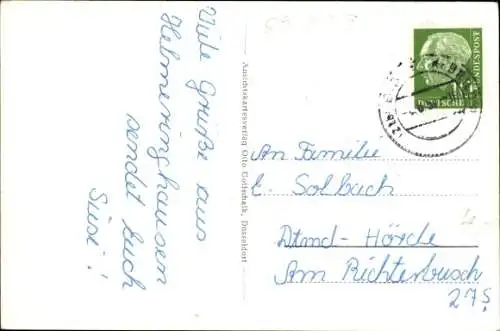 Viele Grüße aus
Helmeringhausen
sendet Euch
Susi!
Ansichtskartenverlag Otto Gottschalk, Düsseldorf
DEUTSCHE
BUNDESPOST
An Familie
E. Solbach
Dtmd-Hörde
Am Richterbusch
275